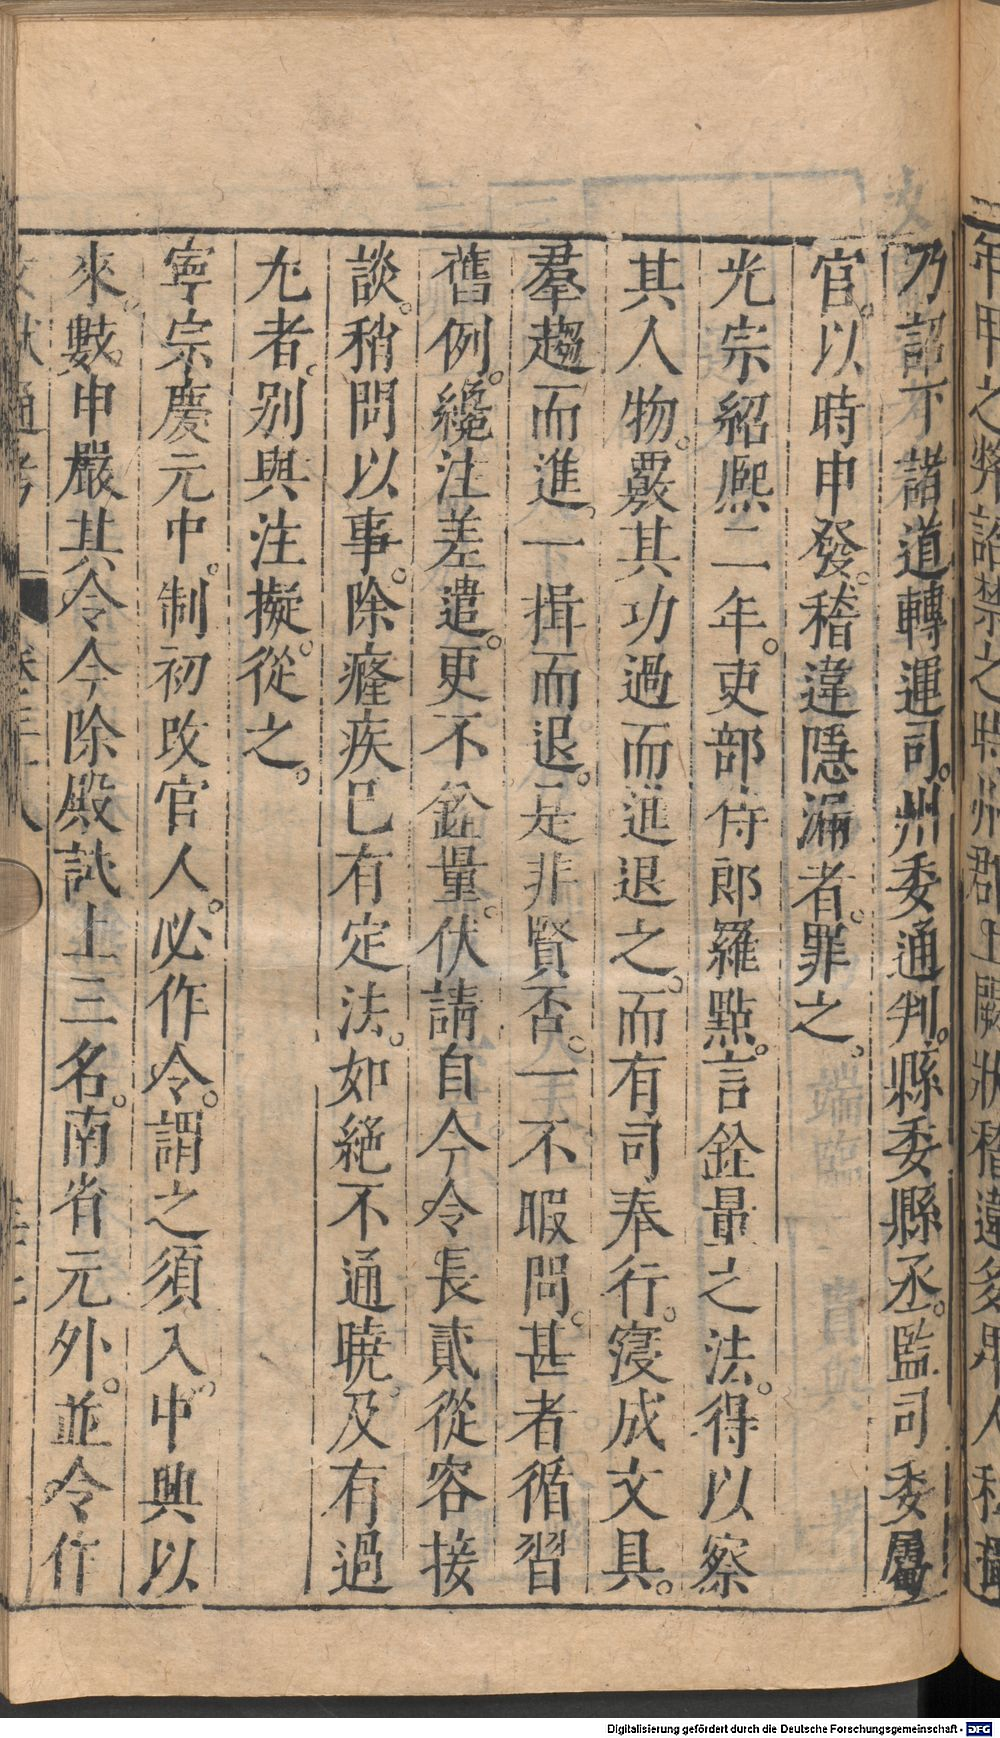 乃詔下諸道轉運司。州委通判。縣委縣丞。監司委屬
官。以時申發。稽違隱漏者。罪之。
光宗紹熙二年。吏部侍郎羅點。言銓量之法。得以察
其人物。覈其功過而進退之。而有司奉行。寖成文具。
羣趨而進。一揖而退。是非賢否。一不暇問。甚者循習
舊例。纔注差遣。更不銓量。伏請自今令長貳從容接
談。稍問以事。除癃疾已有定法。如絕不通曉。及有過
尤者。別與注擬。從之。
寧宗慶元中。制初改官人。必作令。謂之須入。中興以
來。數申嚴其令。今除殿試上三名。南省元外。並令作
Digitalisierung gefördert durch die Deutsche Forschungsgemeinschaft - DFG